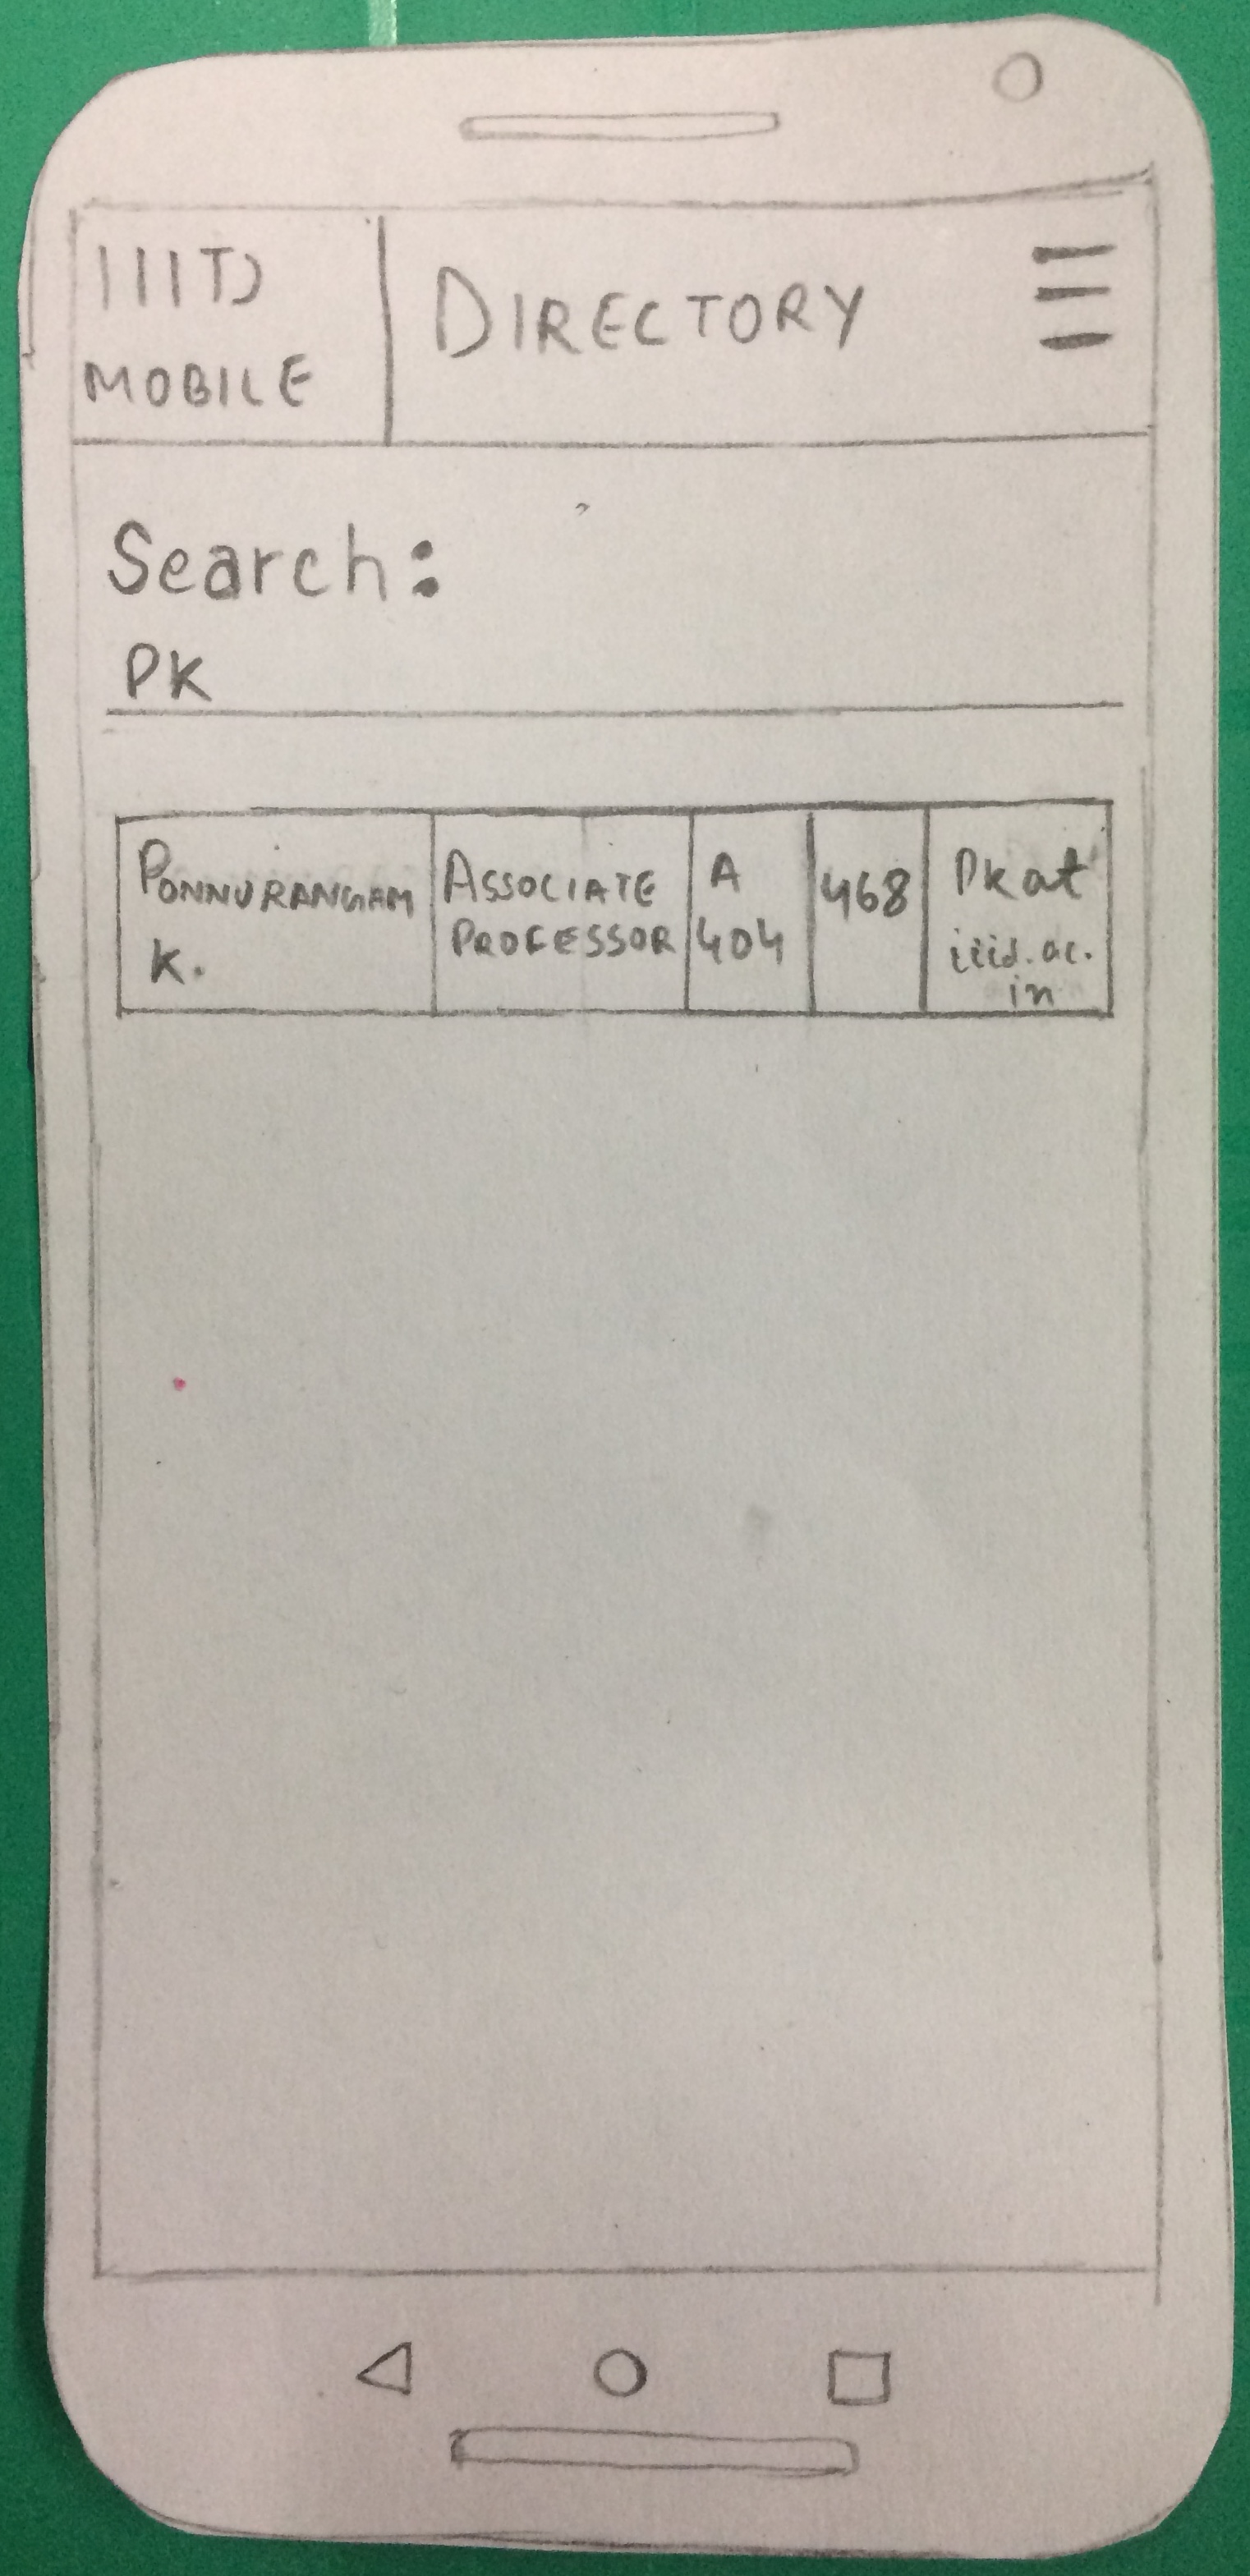 IIITD
MOBILE
DIRECTORY
Search:
PK
PONNURANGAM
K.
ASSOCIATE
PROFESSOR
A
404
468
Pk at
iiid.ac.
in